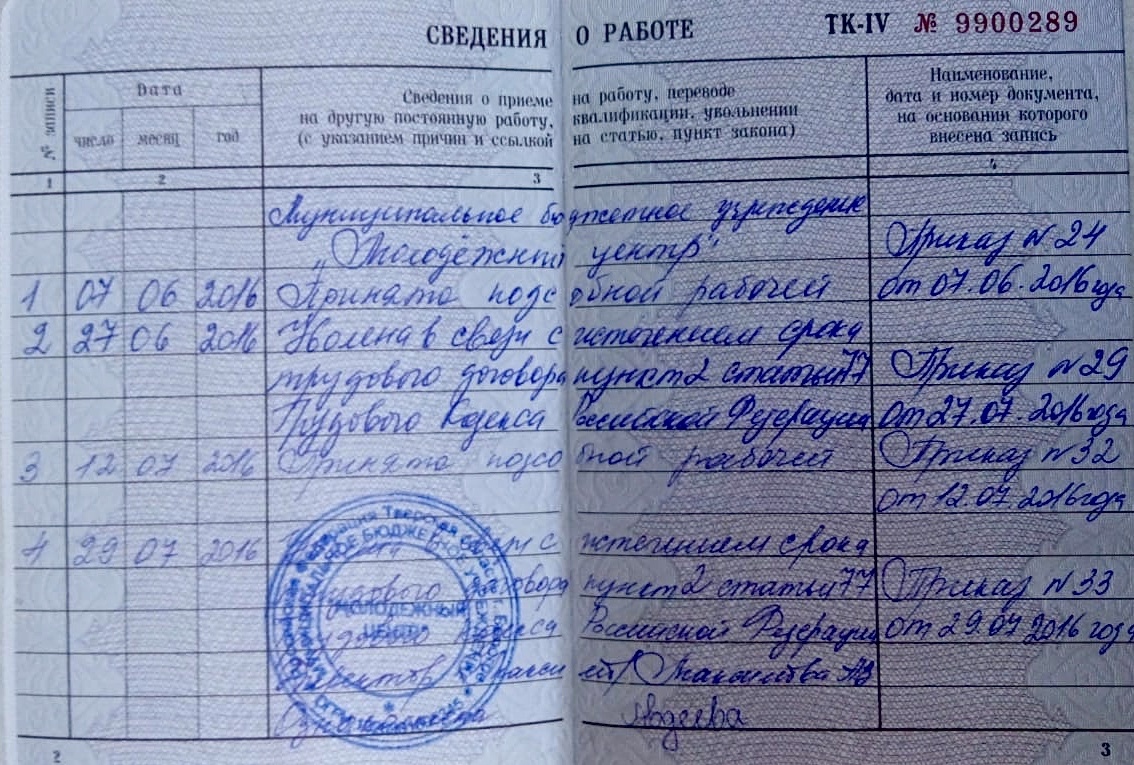 СВЕДЕНИЯ О РАБОТЕ ТК-IV № 9900289
№ записи
Дата
число месяц год
Сведения о приеме на работу, переводе
на другую постоянную работу, квалификации, увольнении
(с указанием причин и ссылкой на статью, пункт закона)
Наименование,
дата и номер документа,
на основании которого
внесена запись
1 2 3 4
Муниципальное бюджетное учреждение
"Молодёжный центр" Приказ №24
1 07 06 2016 Принята подсобной рабочей от 07.06.2016 года
2 27 06 2016 Уволена в связи с истечением срока
трудового договора пункт 2 статьи 77 Приказ №29
Трудового Кодекса Российской Федерации от 27.07.2016 года
3 12 07 2016 Принята подсобной рабочей Приказ №32
от 12.07.2016 года
4 29 07 2016 с истечением срока
трудового договора пункт 2 статьи 77 Приказ №33
Трудового Кодекса Российской Федерации от 29.07.2016 года
Директор
Ознакомлена Авдеева
МОЛОДЕЖНЫЙ
ЦЕНТР
2 3